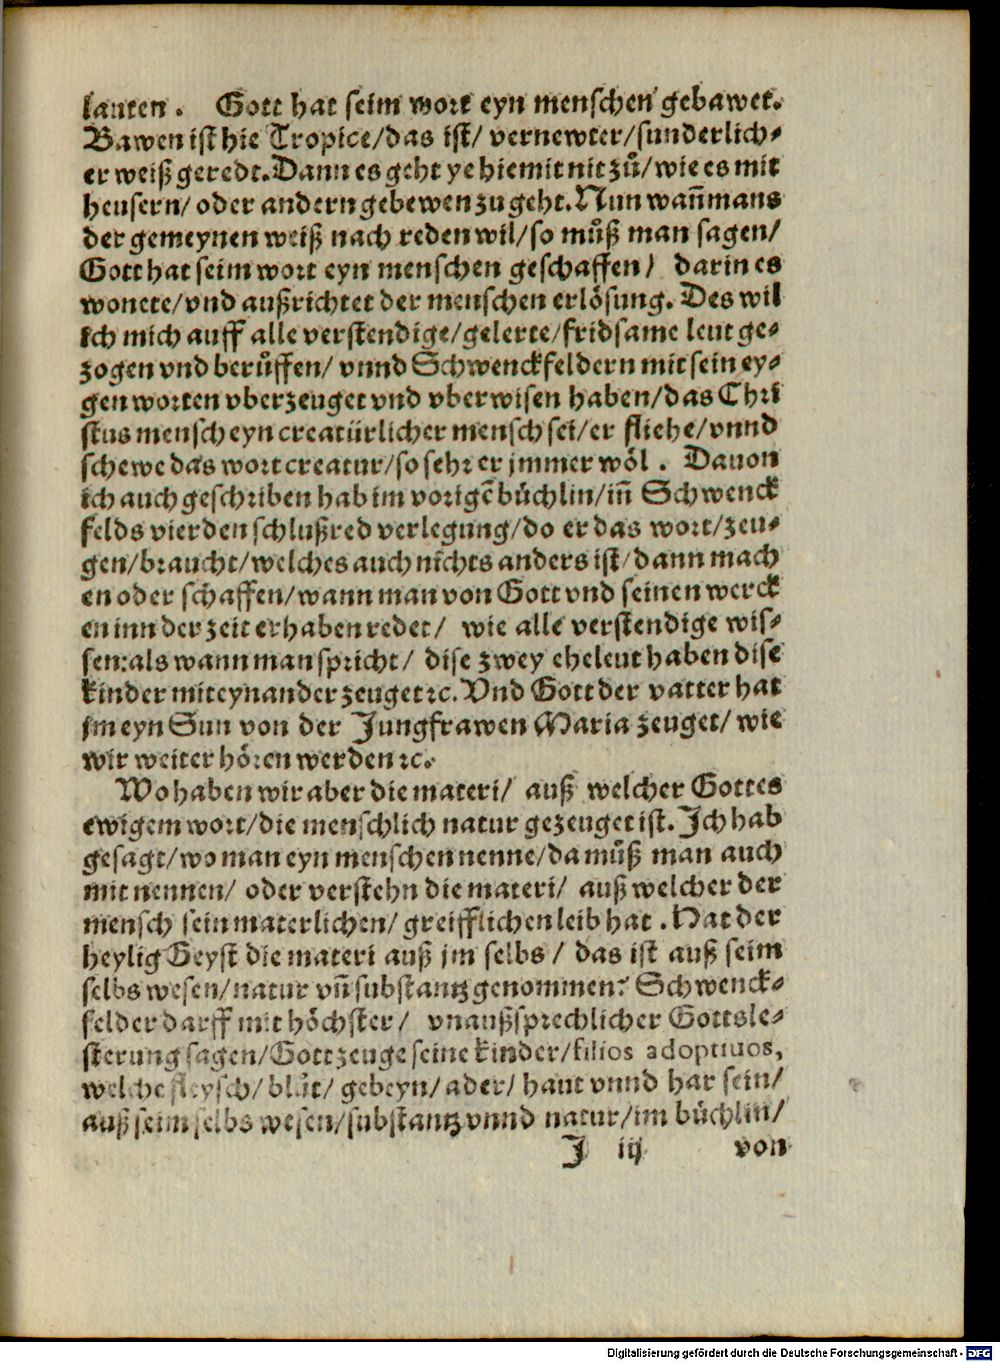 lauten. Gott hat seim wort eyn menschen gebawet.
Bawen ist hie Tropice/das ist/ vernewter/sunderlich⸗
er weiß geredt. Dann es geht ye hiemit nit zů/wie es mit
heusern/ oder andern gebewen zu geht. Nun wañ mans
der gemeynen weiß nach reden wil/so můß man sagen/
Gott hat seim wort eyn menschen geschaffen/ darin es
wonete/vnd außrichtet der menschen erlösung. Des wil
ich mich auff alle verstendige/gelerte/fridsame leut ge⸗
zogen vnd berůffen/ vnnd Schwenckfeldern mit sein ey⸗
gen worten vberzeuget vnd vberwisen haben/das Chri
stus mensch eyn creatürlicher mensch sei/er fliehe/vnnd
schewe das wort creatur/so sehr er jmmer wöl. Dauon
ich auch geschriben hab im vorigē bůchlin/iñ Schwenck
felds vierden schlußred verlegung/do er das wort/zeu⸗
gen/braucht/welches auch nichts anders ist/dann mach
en oder schaffen/wann man von Gott vnd seinen werck
en inn der zeit erhaben redet/ wie alle verstendige wis⸗
sen:als wann man spricht/ dise zwey eheleut haben dise
kinder mit eynander zeuget ꝛc. Vnd Gott der vatter hat
jm eyn Sun von der Jungfrawen Maria zeuget/ wie
wir weiter hören werden ꝛc.
Wo haben wir aber die materi/ auß welcher Gottes
ewigem wort/die menschlich natur gezeuget ist. Ich hab
gesagt/wo man eyn menschen nenne/da můß man auch
mit nennen/ oder verstehn die materi/ auß welcher der
mensch sein materlichen/ greifflichen leib hat. Hat der
heylig Geyst die materi auß jm selbs/ das ist auß seim
selbs wesen/natur vñ substantz genommen? Schwenck⸗
felder darff mit höchster/ vnaußsprechlicher Gottsle⸗
sterung sagen/Gott zeuge seine kinder/filios adoptiuos,
welche fleysch/ blůt/ gebeyn/ ader/ haut vnnd har sein/
auß seim selbs wesen/substantz vnnd natur/im bůchlin/
J iij von
Digitalisierung gefördert durch die Deutsche Forschungsgemeinschaft - DFG